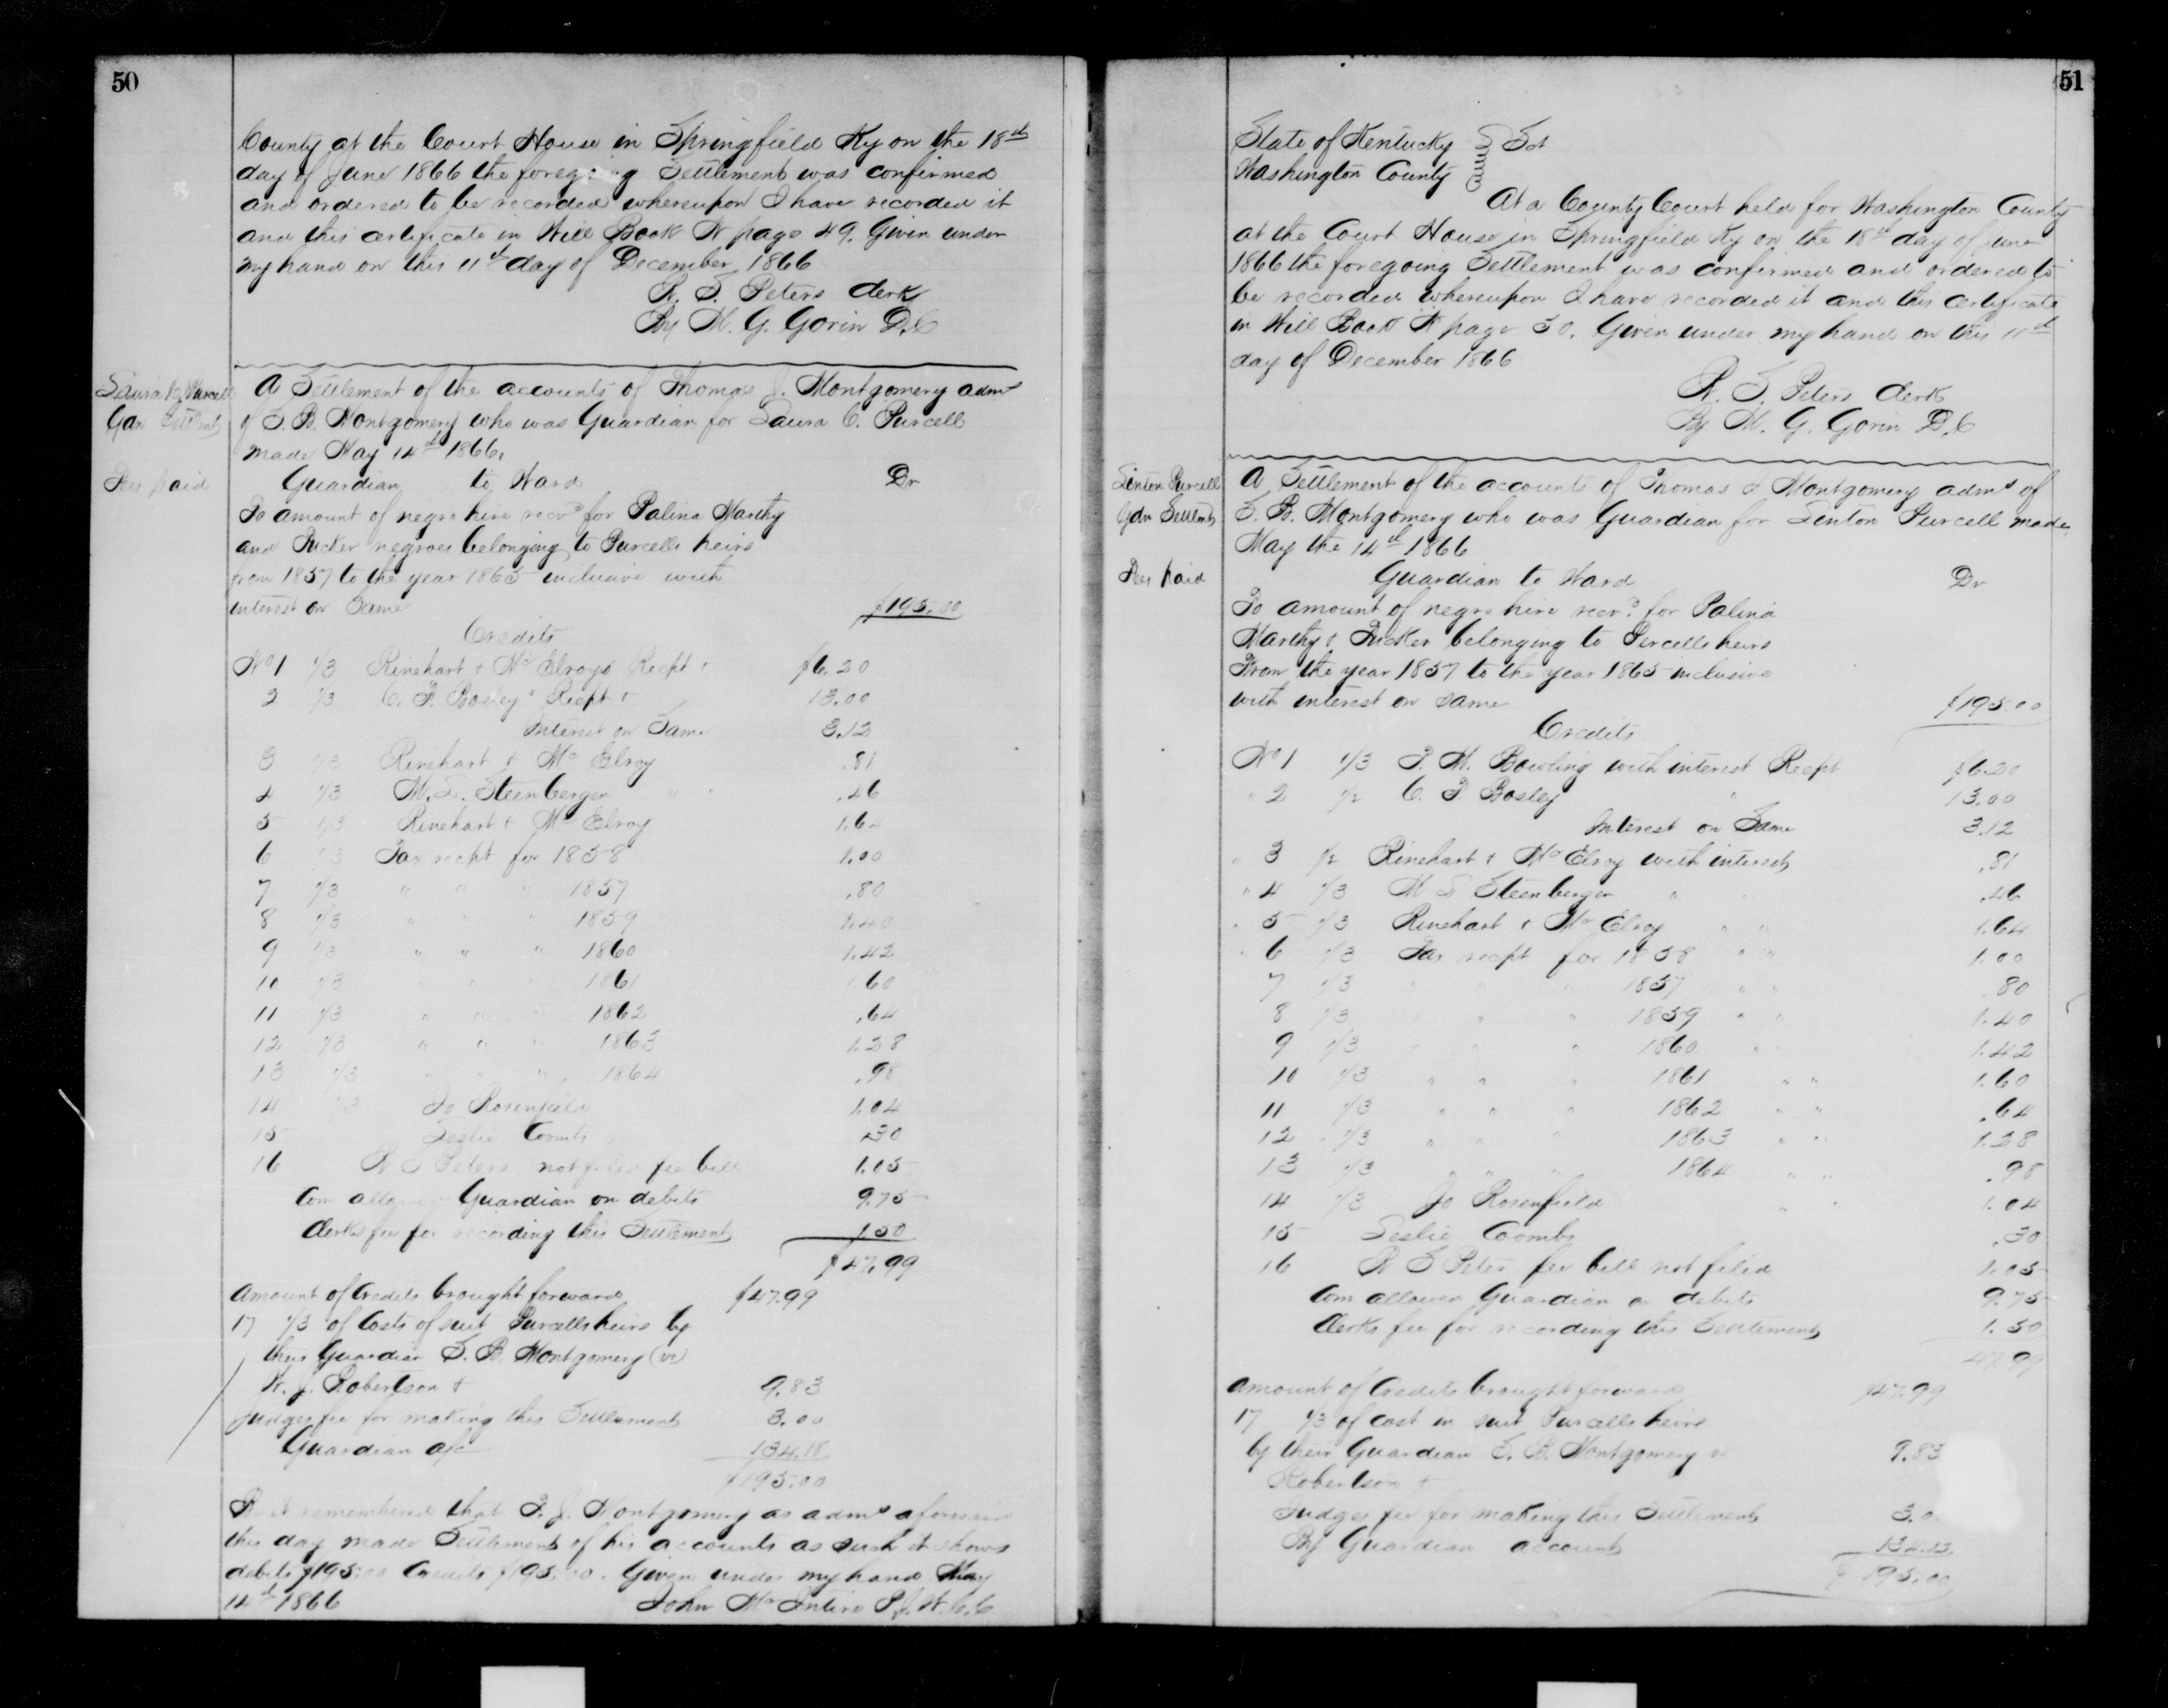 50
County at the Court House in Springfield Ky on the 18th
day of June 1866 the foregoing Settlement was confirmed
and ordered to be recorded whereupon I have recorded it
and this certificate in Will Book N page 49. Given under
my hand on this 11th day of December 1866
R. S. Peters Clerk
By M. G. Gorin D.C
Laura C. Purcell
Gdn Settlmt
A Settlement of the accounts of Thomas J. Montgomery admr
of S. B. Montgomery who was Guardian for Laura C. Purcell
made May 14th 1866.
Fees paid
Guardian to Ward Dr
To amount of negro hire recvd for Palina Marthy
and Tucker negroes belonging to Purcells heirs
from 1857 to the year 1865 inclusive with
interest on Same $195.00
Credits
No 1 1/3 Rinehart & McElroys Recpt + $6.20
2 1/3 C. F. Bosley Recpt + 13.00
Interest on Same 3.12
3 1/3 Rinehart & McElroy .81
4 1/3 M. S. Steenbergen " " .46
5 1/3 Rinehart & McElroy 1.64
6 1/3 Tax recpt for 1858 1.00
7 1/3 " " " 1857 .80
8 1/3 " " " 1859 1.40
9 1/3 " " " 1860 1.42
10 1/3 " " " 1861 1.60
11 1/3 " " " 1862 .64
12 1/3 " " " 1863 1.28
13 1/3 " " " 1864 .98
14 1/3 Jo Rosenfield 1.04
15 Leslie Coombs .30
16 R S Peters not filed fee bill 1.05
Com allowed Guardian on debits 9.75
Clerks fee for recording this Settlement 1.50
$47.99
Amount of Credits brought forward $47.99
17 1/3 of Costs of suit Purcells heirs by
their Guardian S. B. Montgomery (vs)
W. J. Robertson + 9.83
Judges fee for making this Settlement 3.00
Guardian a/c 134.18
$195.00
Be it remembered that T. J. Montgomery as admr aforesaid
this day made Settlement of his accounts as such it shows
debits $195.00 Credits $195.00. Given under my hand May
14th 1866 John McIntire P.J.W.C.C
51
State of Kentucky Sct
Washington County
At a County Court held for Washington County
at the Court House in Springfield Ky on the 18th day of June
1866 the foregoing Settlement was confirmed and ordered to
be recorded whereupon I have recorded it and this certificate
in Will Book N page 50. Given under my hand on this 11th
day of December 1866
R. S. Peters Clerk
By M. G. Gorin D.C
Linton Purcell
Gdn Settlmt
A Settlement of the accounts of Thomas J Montgomery admr of
S. B. Montgomery who was Guardian for Linton Purcell made
May the 14th 1866
Fees paid
Guardian to Ward Dr
To amount of negro hire recvd for Palina
Marthy & Tucker belonging to Purcells heirs
From the year 1857 to the year 1865 inclusive
with interest on same $195.00
Credits
No 1 1/3 T. M. Bowling with interest Recpt $6.20
" 2 1/2 C. F Bosley " 13.00
Interest on Same 3.12
" 3 1/2 Rinehart & McElroy with interest .81
" 4 1/3 M S Steenbergen " .46
" 5 1/3 Rinehart & McElroy " " 1.64
" 6 1/3 Tax recpt for 1858 " " 1.00
7 1/3 " " " 1857 " " .80
8 1/3 " " " 1859 " " 1.40
9 1/3 " " " 1860 " " 1.42
10 1/3 " " " 1861 " " 1.60
11 1/3 " " " 1862 " " .64
12 1/3 " " " 1863 " " 1.28
13 1/3 " " " 1864 " " .98
14 1/3 Jo Rosenfield " " 1.04
15 Leslie Coombs .30
16 R S Peters fee bill not filed 1.05
Com allowed Guardian on debits 9.75
Clerks fee for recording this Settlement 1.50
47.99
Amount of Credits brought forward $47.99
17 1/3 of cost in suit Purcells heirs
by their Guardian S. B. Montgomery vs 9.83
Robertson +
Judges fee for making this Settlement 3.0
By Guardian account 134.23
$195.00